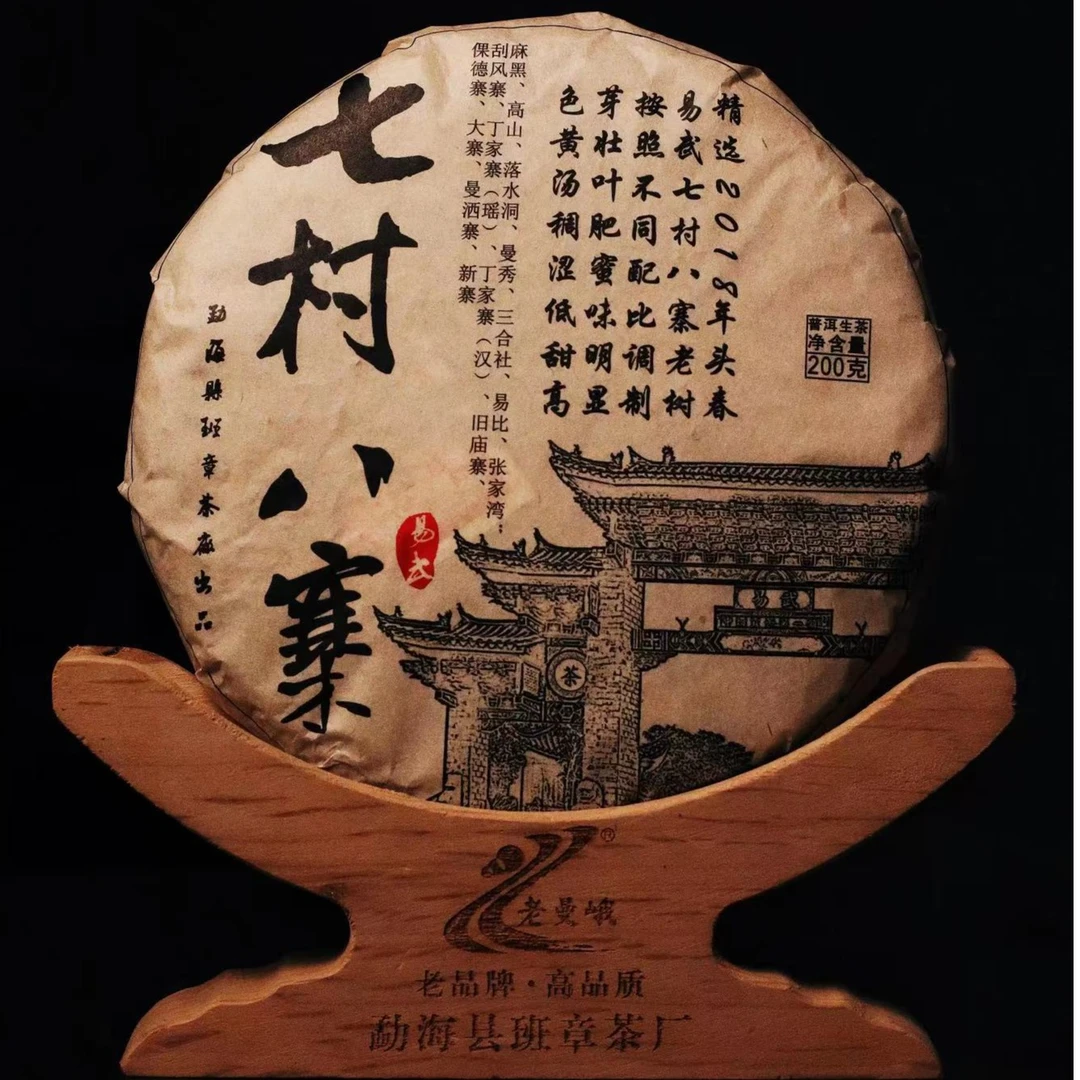 精选2018年头春
易武七村八寨老树
按照不同配比调制
芽壮叶肥蜜味明显
色黄汤稠涩低甜高
麻黑、高山、落水洞、曼秀、三合社、易比、张家湾；
刮风寨、丁家寨（瑶）、丁家寨（汉）、旧庙寨、
倮德寨、大寨、曼洒寨、新寨
七村八寨
易武
勐海县班章茶厰出品
普洱生茶
净含量
200克
易武
茶
®
老曼峨
老品牌·高品质
勐海县班章茶厂